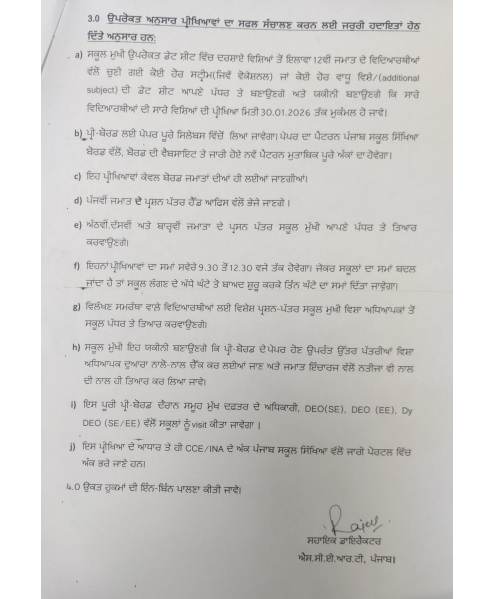 3.0 ਉਪਰੋਕਤ ਅਨੁਸਾਰ ਪ੍ਰੀਖਿਆਵਾਂ ਦਾ ਸਫਲ ਸੰਚਾਲਣ ਕਰਨ ਲਈ ਜਰੂਰੀ ਹਦਾਇਤਾਂ ਹੇਠ
ਦਿੱਤੇ ਅਨੁਸਾਰ ਹਨ:
a) ਸਕੂਲ ਮੁਖੀ ਉਪਰੋਕਤ ਡੇਟ ਸ਼ੀਟ ਵਿੱਚ ਦਰਸਾਏ ਵਿਸ਼ਿਆਂ ਤੋਂ ਇਲਾਵਾ 12ਵੀਂ ਜਮਾਤ ਦੇ ਵਿਦਿਆਰਥੀਆਂ
ਵੱਲੋਂ ਚੁਣੀ ਗਈ ਕੋਈ ਹੋਰ ਸਟ੍ਰੀਮ(ਜਿਵੇਂ ਵੋਕੇਸ਼ਨਲ) ਜਾਂ ਕੋਈ ਹੋਰ ਵਾਧੂ ਵਿਸ਼ੇ/(additional
subject) ਦੀ ਡੇਟ ਸ਼ੀਟ ਆਪਣੇ ਪੱਧਰ ਤੇ ਬਣਾਉਣਗੇ ਅਤੇ ਯਕੀਨੀ ਬਣਾਉਣਗੇ ਕਿ ਸਾਰੇ
ਵਿਦਿਆਰਥੀਆਂ ਦੀ ਸਾਰੇ ਵਿਸ਼ਿਆਂ ਦੀ ਪ੍ਰੀਖਿਆ ਮਿਤੀ 30.01.2026 ਤੱਕ ਮੁਕੰਮਲ ਹੋ ਜਾਵੇ।
b) ਪ੍ਰੀ-ਬੋਰਡ ਲਈ ਪੇਪਰ ਪੂਰੇ ਸਿਲੇਬਸ ਵਿੱਚੋਂ ਲਿਆ ਜਾਵੇਗਾ। ਪੇਪਰ ਦਾ ਪੈਟਰਨ ਪੰਜਾਬ ਸਕੂਲ ਸਿੱਖਿਆ
ਬੋਰਡ ਵੱਲੋਂ, ਬੋਰਡ ਦੀ ਵੈਬਸਾਇਟ ਤੇ ਜਾਰੀ ਹੋਏ ਨਵੇਂ ਪੈਟਰਨ ਮੁਤਾਬਿਕ ਪੂਰੇ ਅੰਕਾਂ ਦਾ ਹੋਵੇਗਾ।
c) ਇਹ ਪ੍ਰੀਖਿਆਵਾਂ ਕੇਵਲ ਬੋਰਡ ਜਮਾਤਾਂ ਦੀਆਂ ਹੀ ਲਈਆਂ ਜਾਣਗੀਆਂ।
d) ਪੰਜਵੀਂ ਜਮਾਤ ਦੇ ਪ੍ਰਸ਼ਨ ਪੱਤਰ ਹੈੱਡ ਆਫਿਸ ਵੱਲੋਂ ਭੇਜੇ ਜਾਣਗੇ ।
e) ਅੱਠਵੀਂ,ਦੱਸਵੀਂ ਅਤੇ ਬਾਰ੍ਹਵੀਂ ਜਮਾਤਾ ਦੇ ਪ੍ਰਸਨ ਪੱਤਰ ਸਕੂਲ ਮੁੱਖੀ ਆਪਣੇ ਪੱਧਰ ਤੇ ਤਿਆਰ
ਕਰਵਾਉਣਗੇ।
f) ਇਹਨਾਂ ਪ੍ਰੀਖਿਆਵਾਂ ਦਾ ਸਮਾਂ ਸਵੇਰੇ 9.30 ਤੋਂ 12.30 ਵਜੇ ਤੱਕ ਹੋਵੇਗਾ। ਜੇਕਰ ਸਕੂਲਾਂ ਦਾ ਸਮਾਂ ਬਦਲ
ਜਾਂਦਾ ਹੈ ਤਾਂ ਸਕੂਲ ਲੱਗਣ ਦੇ ਅੱਧੇ ਘੰਟੇ ਤੋਂ ਬਾਅਦ ਸ਼ੁਰੂ ਕਰਕੇ ਤਿੰਨ ਘੰਟੇ ਦਾ ਸਮਾਂ ਦਿੱਤਾ ਜਾਵੇਗਾ।
g) ਵਿਲੱਖਣ ਸਮਰੱਥਾ ਵਾਲੇ ਵਿਦਿਆਰਥੀਆਂ ਲਈ ਵਿਸ਼ੇਸ਼ ਪ੍ਰਸ਼ਨ-ਪੱਤਰ ਸਕੂਲ ਮੁਖੀ ਵਿਸ਼ਾ ਅਧਿਆਪਕਾਂ ਤੋਂ
ਸਕੂਲ ਪੱਧਰ ਤੇ ਤਿਆਰ ਕਰਵਾਉਣਗੇ।
h) ਸਕੂਲ ਮੁੱਖੀ ਇਹ ਯਕੀਨੀ ਬਣਾਉਣਗੇ ਕਿ ਪ੍ਰੀ-ਬੋਰਡ ਦੇ ਪੇਪਰ ਹੋਣ ਉਪਰੰਤ ਉੱਤਰ ਪੱਤਰੀਆਂ ਵਿਸ਼ਾ
ਅਧਿਆਪਕ ਦੁਆਰਾ ਨਾਲੋ-ਨਾਲ ਚੈੱਕ ਕਰ ਲਈਆਂ ਜਾਣ ਅਤੇ ਜਮਾਤ ਇੰਚਾਰਜ ਵੱਲੋਂ ਨਤੀਜਾ ਵੀ ਨਾਲ
ਦੀ ਨਾਲ ਹੀ ਤਿਆਰ ਕਰ ਲਿਆ ਜਾਵੇ।
i) ਇਸ ਪੂਰੀ ਪ੍ਰੀ-ਬੋਰਡ ਦੌਰਾਨ ਸਮੂਹ ਮੁੱਖ ਦਫ਼ਤਰ ਦੇ ਅਧਿਕਾਰੀ, DEO(SE), DEO (EE), Dy
DEO (SE/EE) ਵੱਲੋਂ ਸਕੂਲਾਂ ਨੂੰ visit ਕੀਤਾ ਜਾਵੇਗਾ ।
j) ਇਸ ਪ੍ਰੀਖਿਆ ਦੇ ਆਧਾਰ ਤੇ ਹੀ CCE/INA ਦੇ ਅੰਕ ਪੰਜਾਬ ਸਕੂਲ ਸਿੱਖਿਆ ਵੱਲੋਂ ਜਾਰੀ ਪੋਰਟਲ ਵਿੱਚ
ਅੰਕ ਭਰੇ ਜਾਣੇ ਹਨ।
4.0 ਉਕਤ ਹੁਕਮਾਂ ਦੀ ਇੰਨ-ਬਿੰਨ ਪਾਲਣਾ ਕੀਤੀ ਜਾਵੇ।
ਸਹਾਇਕ ਡਾਇਰੈਕਟਰ
ਐਸ.ਸੀ.ਈ.ਆਰ.ਟੀ, ਪੰਜਾਬ।